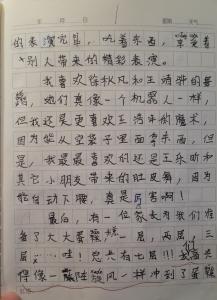 的表演完呈，吃着东西，享受着
别人带来的精彩表演。
我喜欢徐秋凡和王清洋的舞
蹈，她们真像一个机器人一样，
但我还是更喜欢王清洋的魔术，
因为能从空袋子里面拿东西，但
是，我最最喜欢的还是王乐昕和
其它小朋友带来的肚皮舞，因为
能自动下腰，真是厉害啊！
最后，有一位家长为我们准
备了大大蛋糕，一层，两层，三
层，……哇！总共有七层！！！我
俩像一陈陆风一样冲到了蛋糕